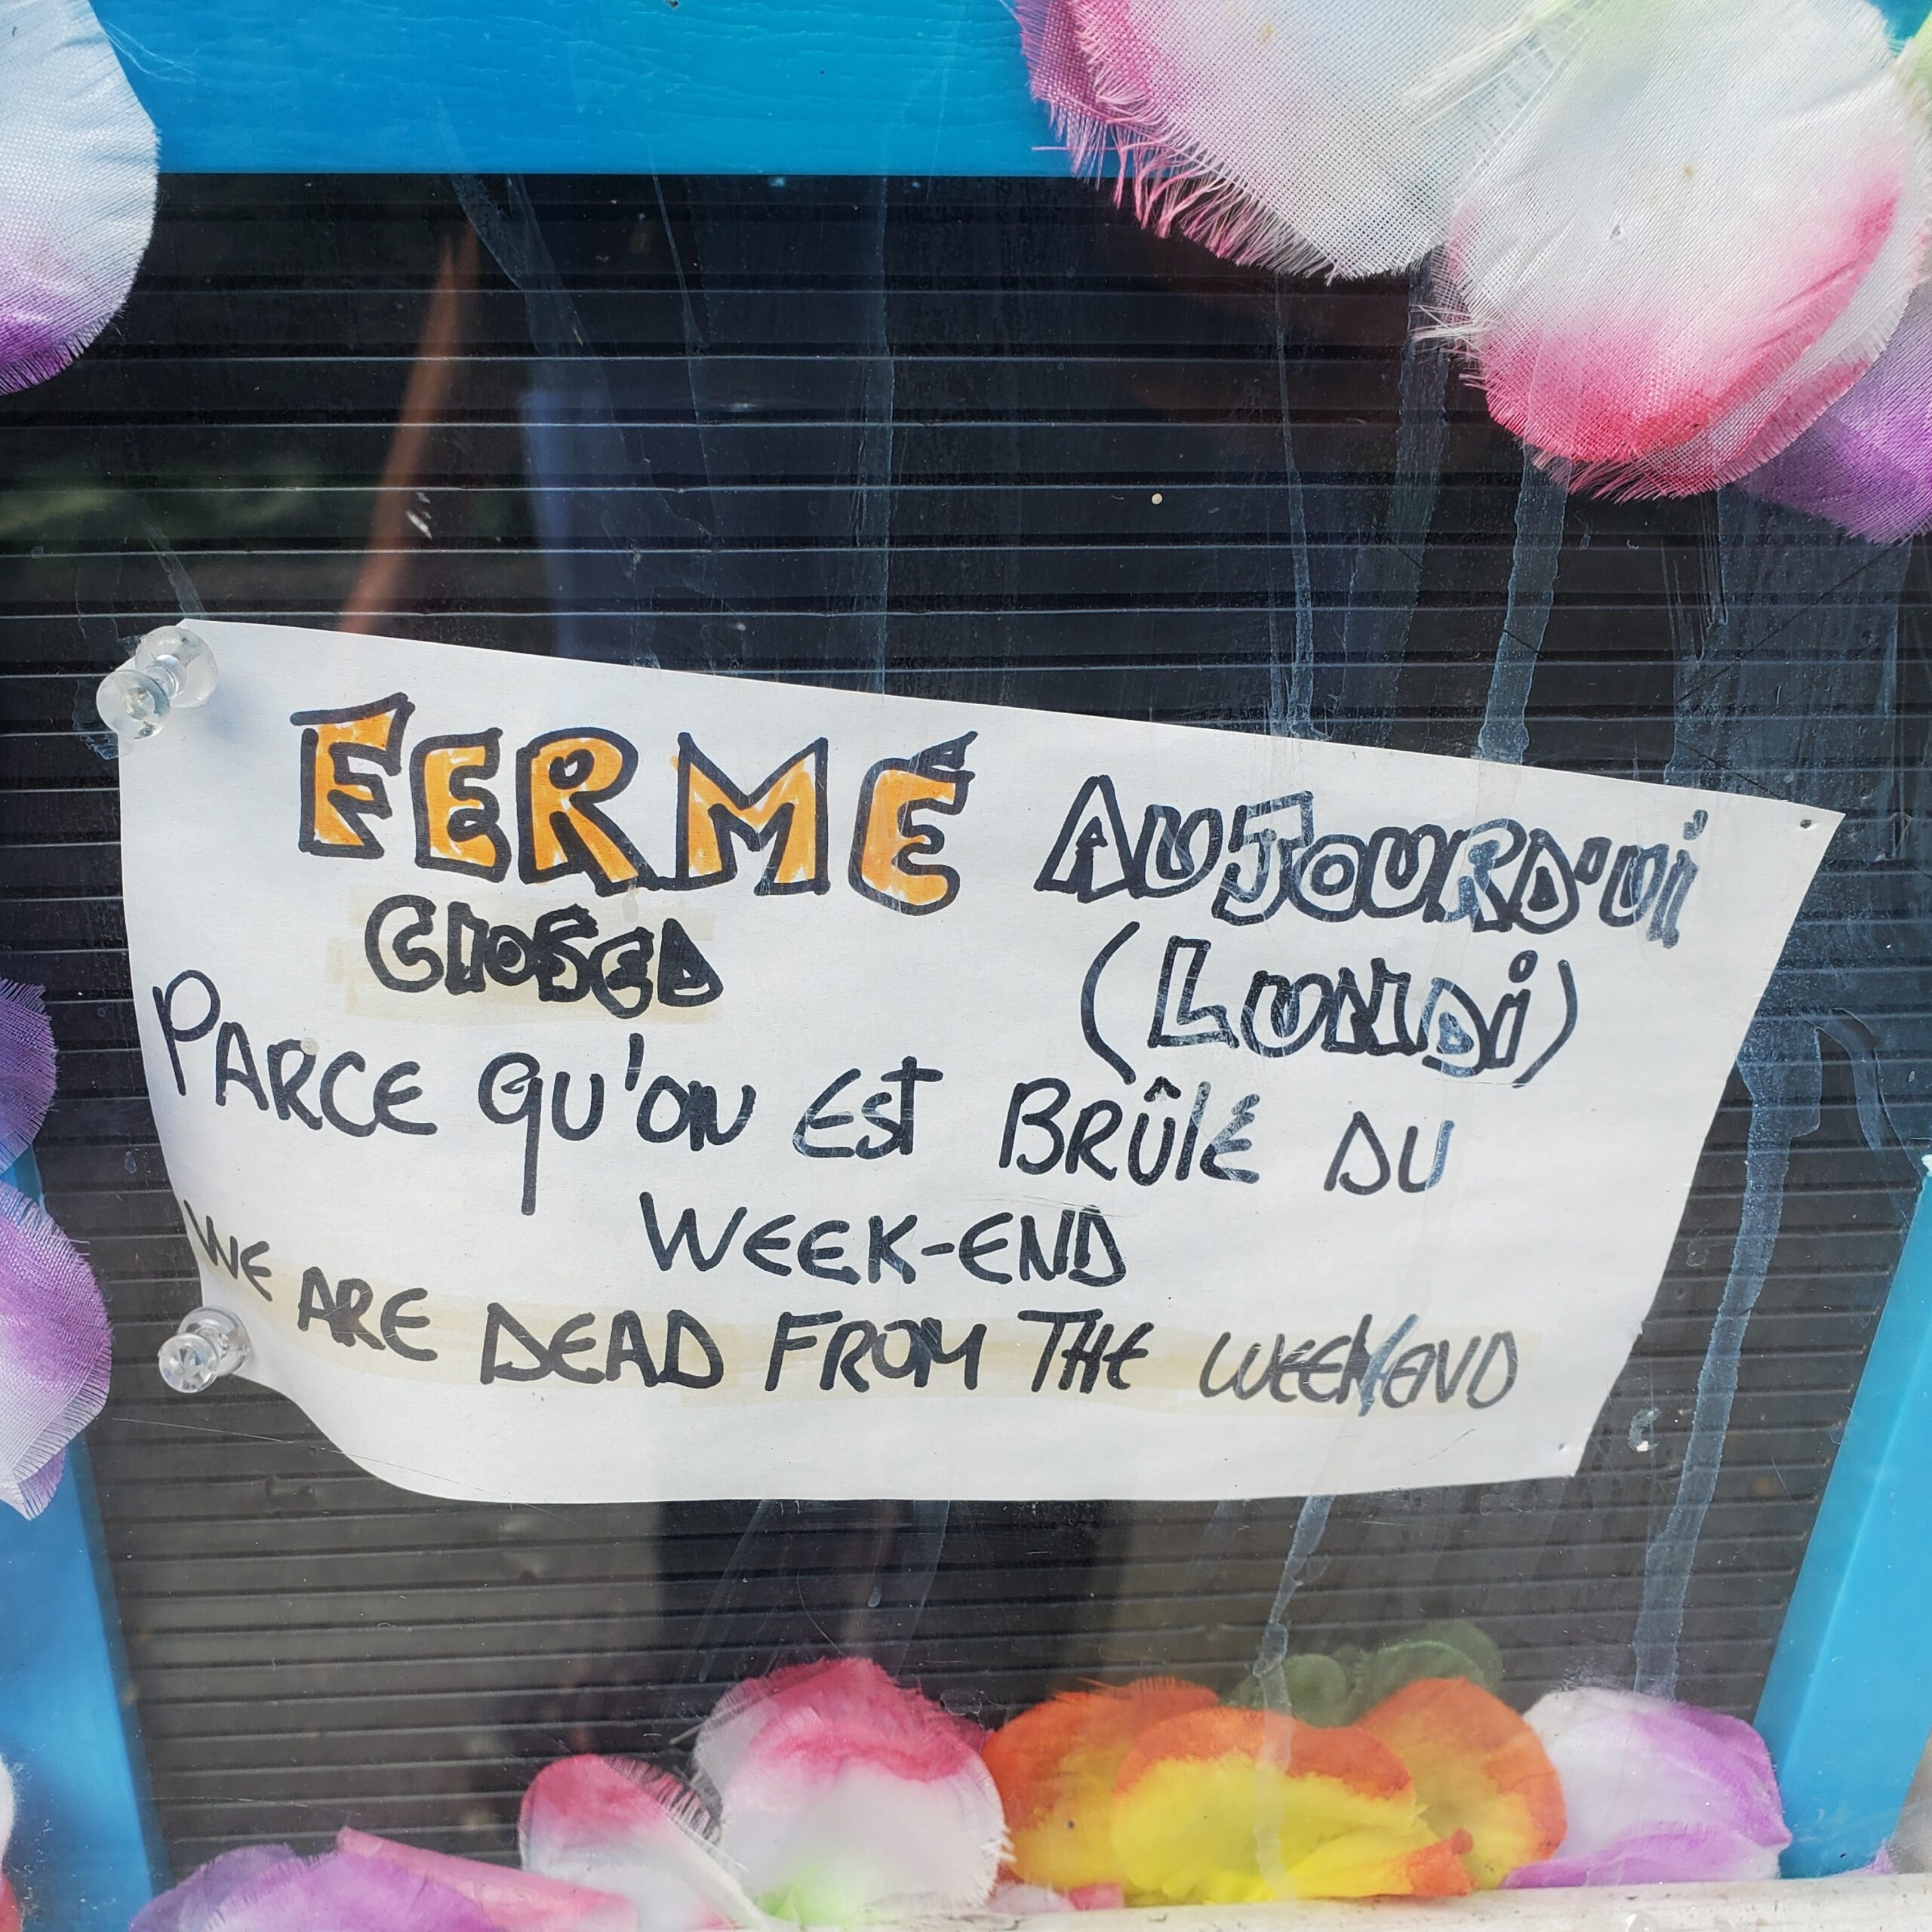 FERMÉ AUJOURD'UI
CLOSED (LUNDI)
PARCE QU'ON EST BRÛLÉ DU
WEEK-END
WE ARE DEAD FROM THE WEEKEND